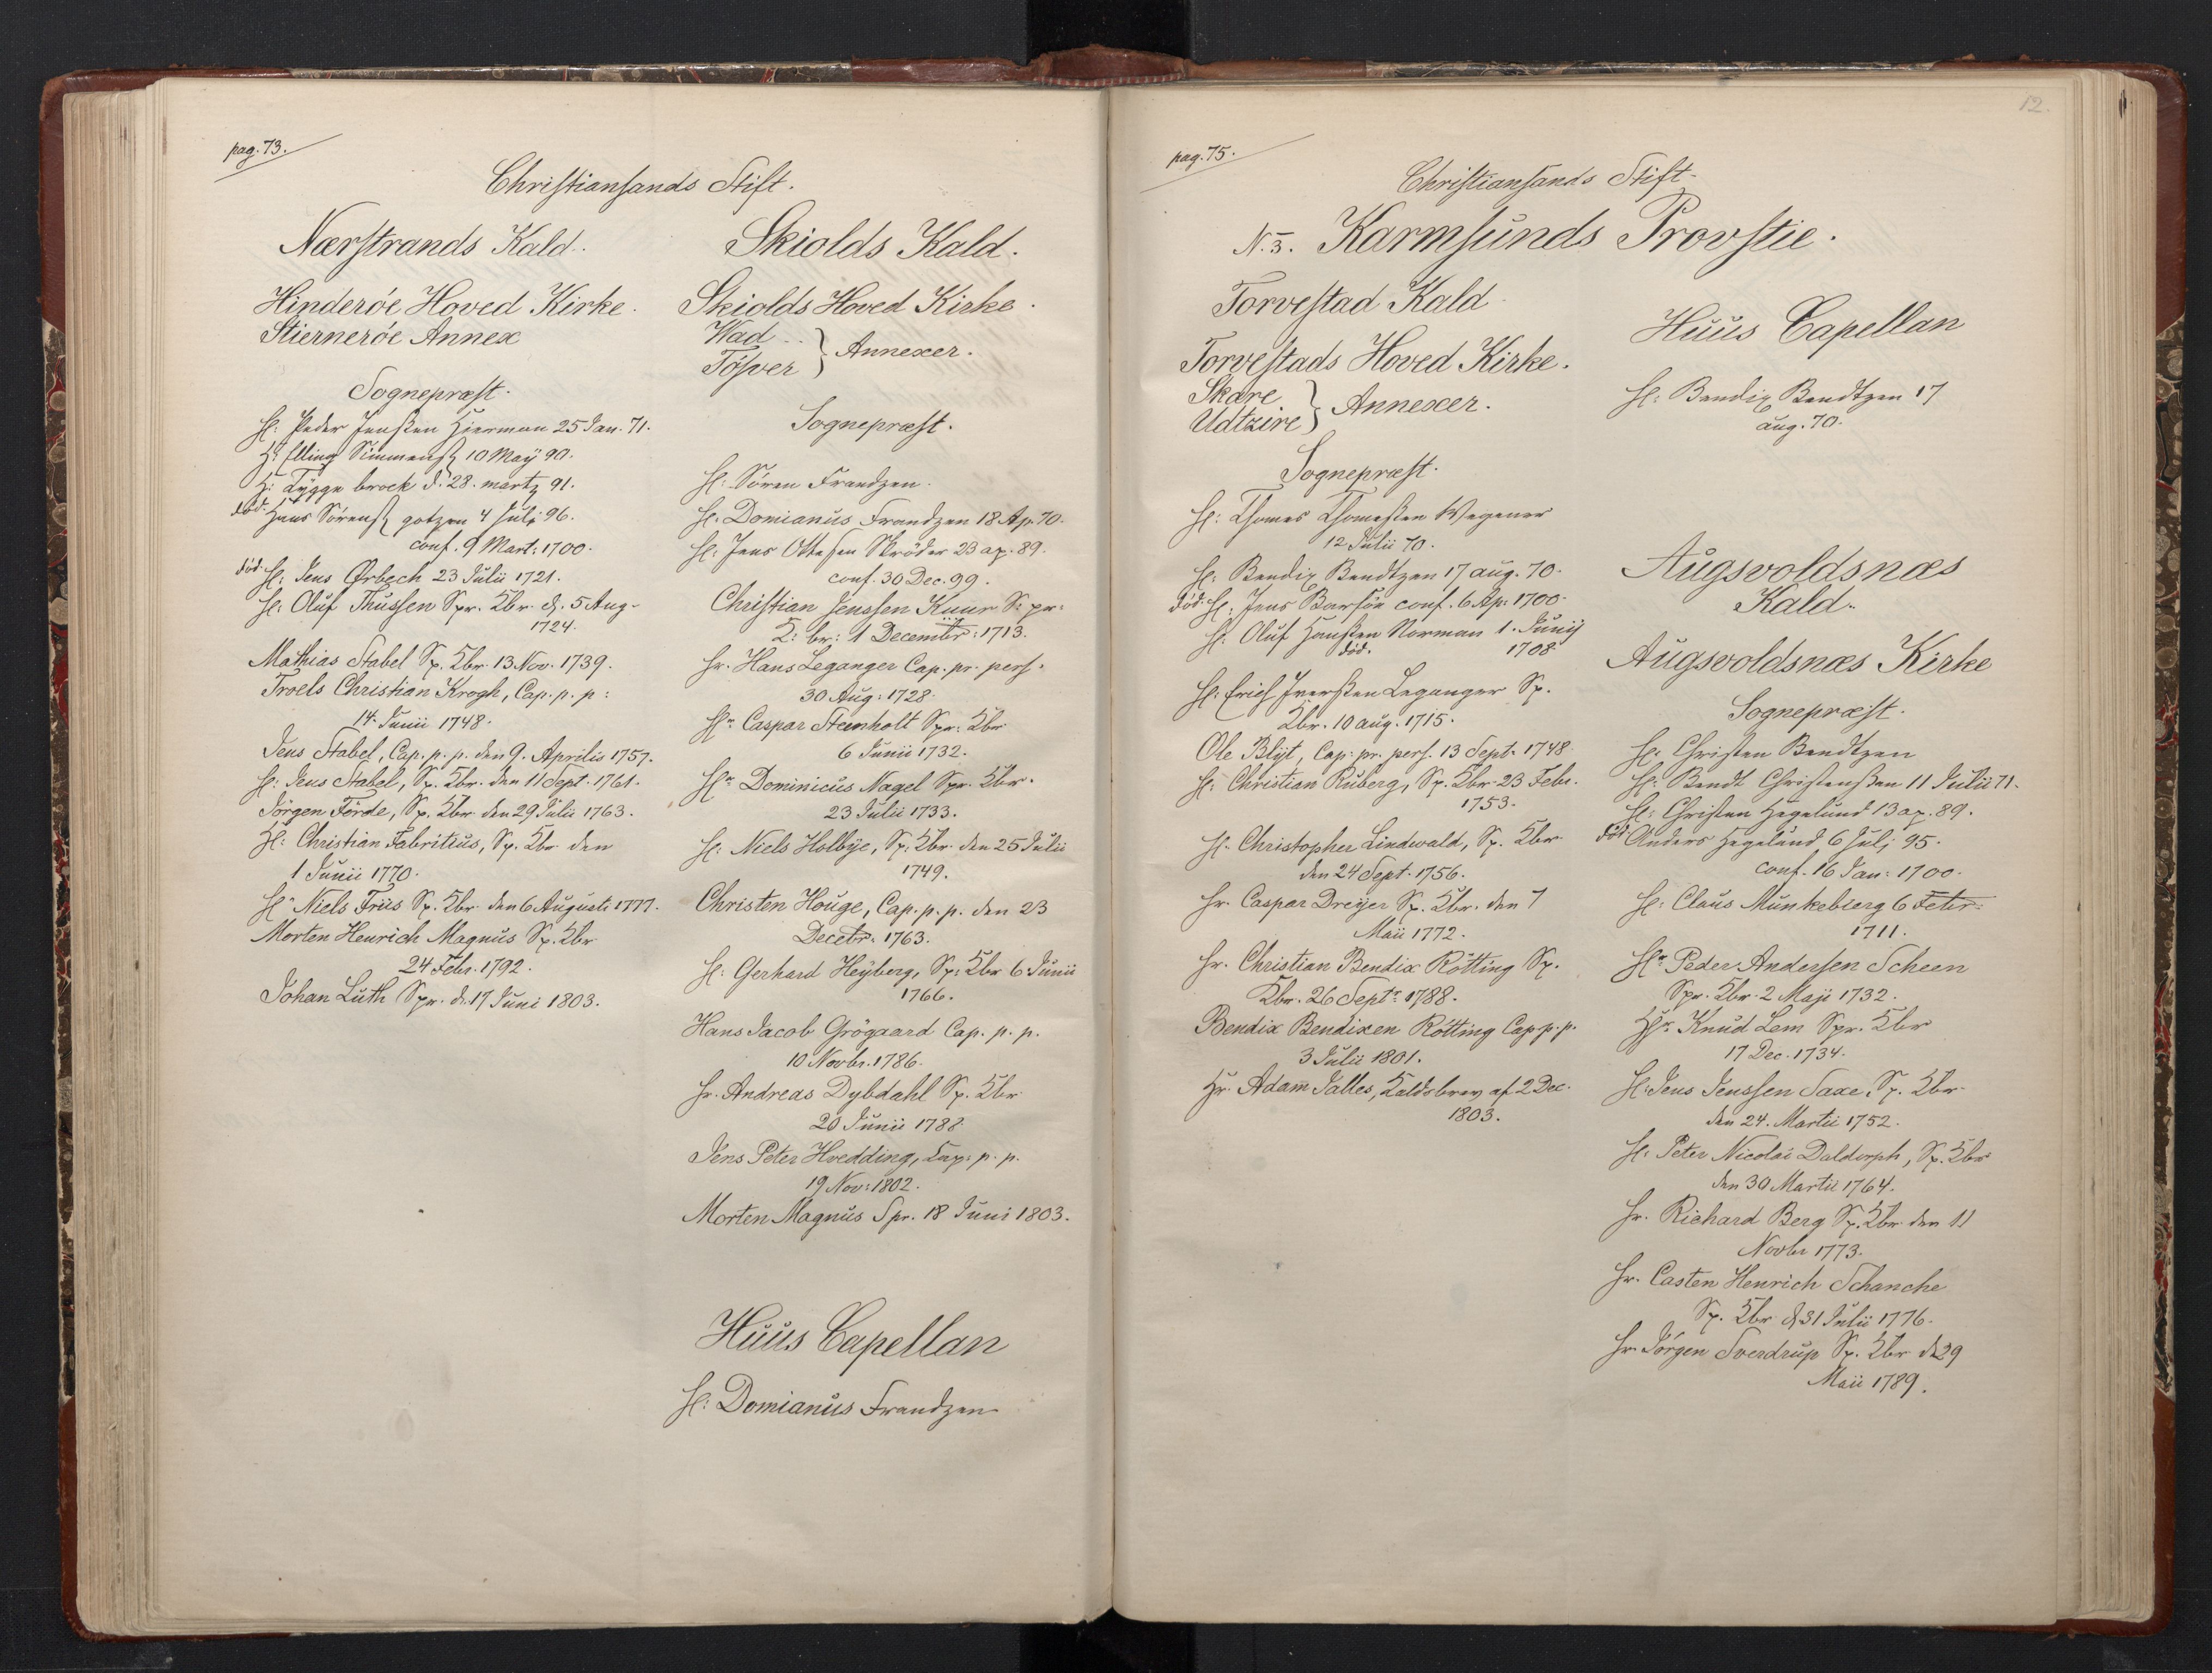 pag. 73.
Christiansands Stift.
Nærstrands Kald.
Hinderöe Hoved Kirke.
Stierneröe Annex
Sognepræst.
H: Peder Jenssen Hierman 25 Jan. 71.
Hr Elling Simmens 10 Maÿ 90.
H: Tygge brock d. 28. martz 91.
död. Hans Sörens gotzen 4 Juli 96.
conf. 9 Mart: 1700.
död. H: Jens Ørbech 23 Julii 1721.
H: Oluf Thussen Spr. Kbr. d. 5 Aug.
1724.
Mathias Stabel Sp. Kbr. 13 Nov. 1739.
Troels Christian Krogh, Cap. p. p:
14. Junii 1748.
Jens Stabel, Cap. p. p. den 9. Aprilis 1757.
H: Jens Stabel, Sp. Kbr. den 11 Sept. 1761.
Jörgen Förde, Sp. Kbr den 29 Julii 1763.
H: Christian Fabritius, Sp. Kbr den
1 Junii 1770.
Hr Niels Friis Sp. Kbr. den 6 Augusti 1777.
Morten Henrich Magnus Sp. Kbr
24 Febr. 1792.
Johan Luth Spr. d. 17 Juni 1803.
Skiolds Kald.
Skiolds Hoved Kirke.
Wad
Tösver } Annexer.
Sognepræst.
H: Sören Frandzen.
H: Domianus Frandzen 18 Ap. 70.
H: Jens Ottesen Skröder 23 ap. 89.
conf. 30 Dec. 99.
Christian Jenssen Kuur S: pr:
K: br: 1 Decembr: 1713.
Hr. Hans Leganger Cap. pr. pers.
30 Aug: 1728.
Hr. Caspar Stemholt Spr. Kbr
6 Junii 1732.
Hr Dominicus Nagel Spr. Kbr.
23 Julii 1733.
H: Niels Holbÿe, Sp. Kbr. den 25 Julii
1749.
Christen Houge, Cap. p. p. den 23
Decebr: 1763.
H: Gerhard Heÿberg, Sp: Kbr 6 Junii
1766.
Hans Jacob Grögaard Cap. p. p.
10 Novbr. 1786.
Hr. Andreas Dybdahl Sp. Kbr
20 Junii 1788
Jens Peter Hvedding, Cap. p. p.
19 Nov: 1802.
Morten Magnus Spr. 18 Juni 1803.
Huus Capellan
H: Domianus Frandzen
12.
pag. 75.
Christiansands Stift.
N. 3. Karmsunds Provstie.
Torvestad Kald
Torvestads Hoved Kirke.
Skare
Udtzire } Annexer.
Sognepræst.
H: Thomes Thomessen Wegener
12 Julii 70.
H: Bendix Bendtzen 17 aug. 70.
död. H: Jens Barsön conf. 6 Ap: 1700.
H: Oluf Hanssen Norman 1. Junij
död. 1708
H: Erich Iverssen Leganger Sp.
Kbr. 10 aug. 1715.
Ole Blÿt, Cap. pr. pers. 13 Sept. 1748
H: Christian Ruberg, Sp. Kbr. 23 Febr.
1753.
H. Christopher Lindewald, Sp. Kbr.
den 24 Sept. 1756.
Hr. Caspar Dreÿer Sp. Kbr. den 7
Maii 1772.
Hr. Christian Bendix Rötting Sp.
Kbr. 26 Septr 1788.
Bendix Bendixen Rötting Cap. p. p.
3 Julii 1801.
Hr. Adam Talles, Kaldsbrev af 2 Dec.
1803.
Huus Capellan
H: Bendix Bendtzen 17
aug. 70.
Augsvoldsnæs
Kald.
Augsvoldsnæs Kirke
Sognepræst.
H: Christen Bendtzen
H: Bendt Christenssen 11 Julii 71.
H: Christen Hegelund 13 ap. 89.
död Anders Hegelund 6 Juli 95.
conf. 16 Jan: 1700.
H: Claus Munkebierg 6 Febr:
1711.
Hr. Peder Andersen Scheen
Spr. Kbr. 2 Maji 1732.
Hr. Knud Lem Spr. Kbr
17 Dec. 1734.
H: Jens Jenssen Saxe. Sp. Kbr.
den 24. Martii 1752.
H: Peter Nicolai Daldorph, Sp. Kbr
den 30 Martii 1764.
Hr. Richard Berg Sp. Kbr den 11
Novbr 1773.
Hr. Casten Henrich Schanche
Sp. Kbr d 31 Julii 1776.
Hr. Jörgen Sverdrup Sp. Kbr d 29
Maii 1789.